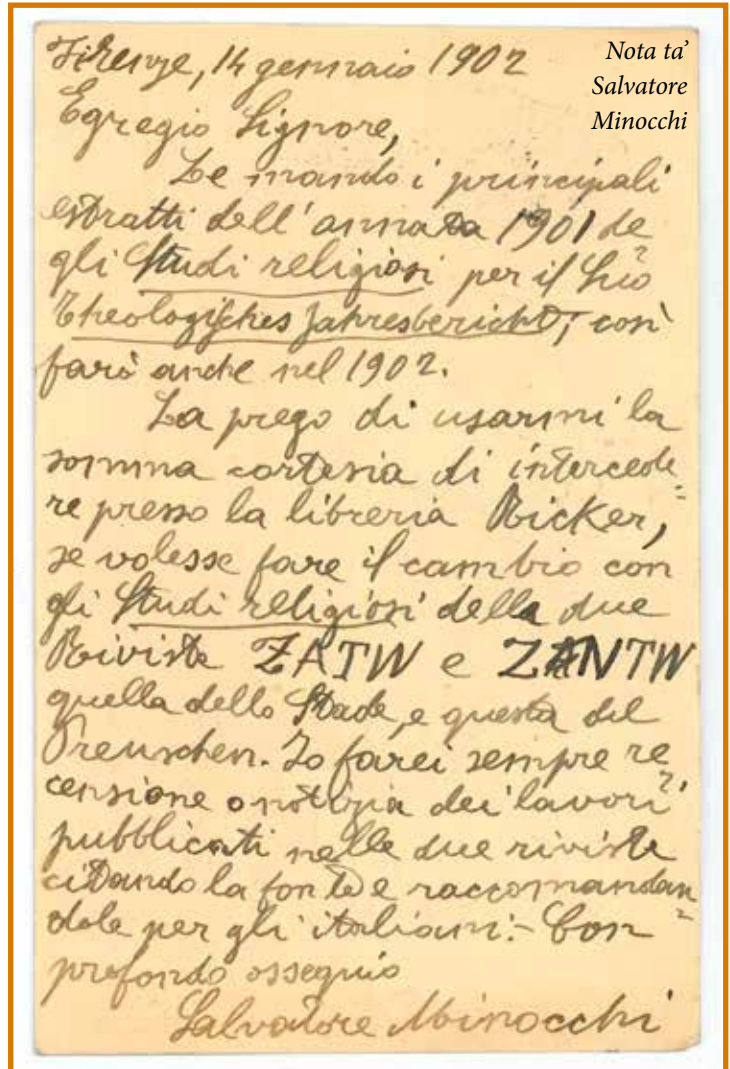 Nota ta’
Salvatore
Minocchi
Firenze, 14 gennaio 1902
Egregio Signore,
Le mando i principali
estratti dell'annata 1901 de
gli Studi religiosi per il Suo
Theologisches Jahresbericht; così
farò anche nel 1902.
La prego di usarmi la
somma cortesia di intercede=
re presso la libreria Ricker,
se volesse fare il cambio con
gli Studi religiosi delle due
Riviste ZATW e ZNTW
quella dello Stade, e questa del
Preuschen. Io farei sempre re=
censione o notizia dei lavori
pubblicati nelle due riviste
citando la fonte e raccomandan=
dole per gli italiani. - Con
profondo ossequio
Salvatore Minocchi